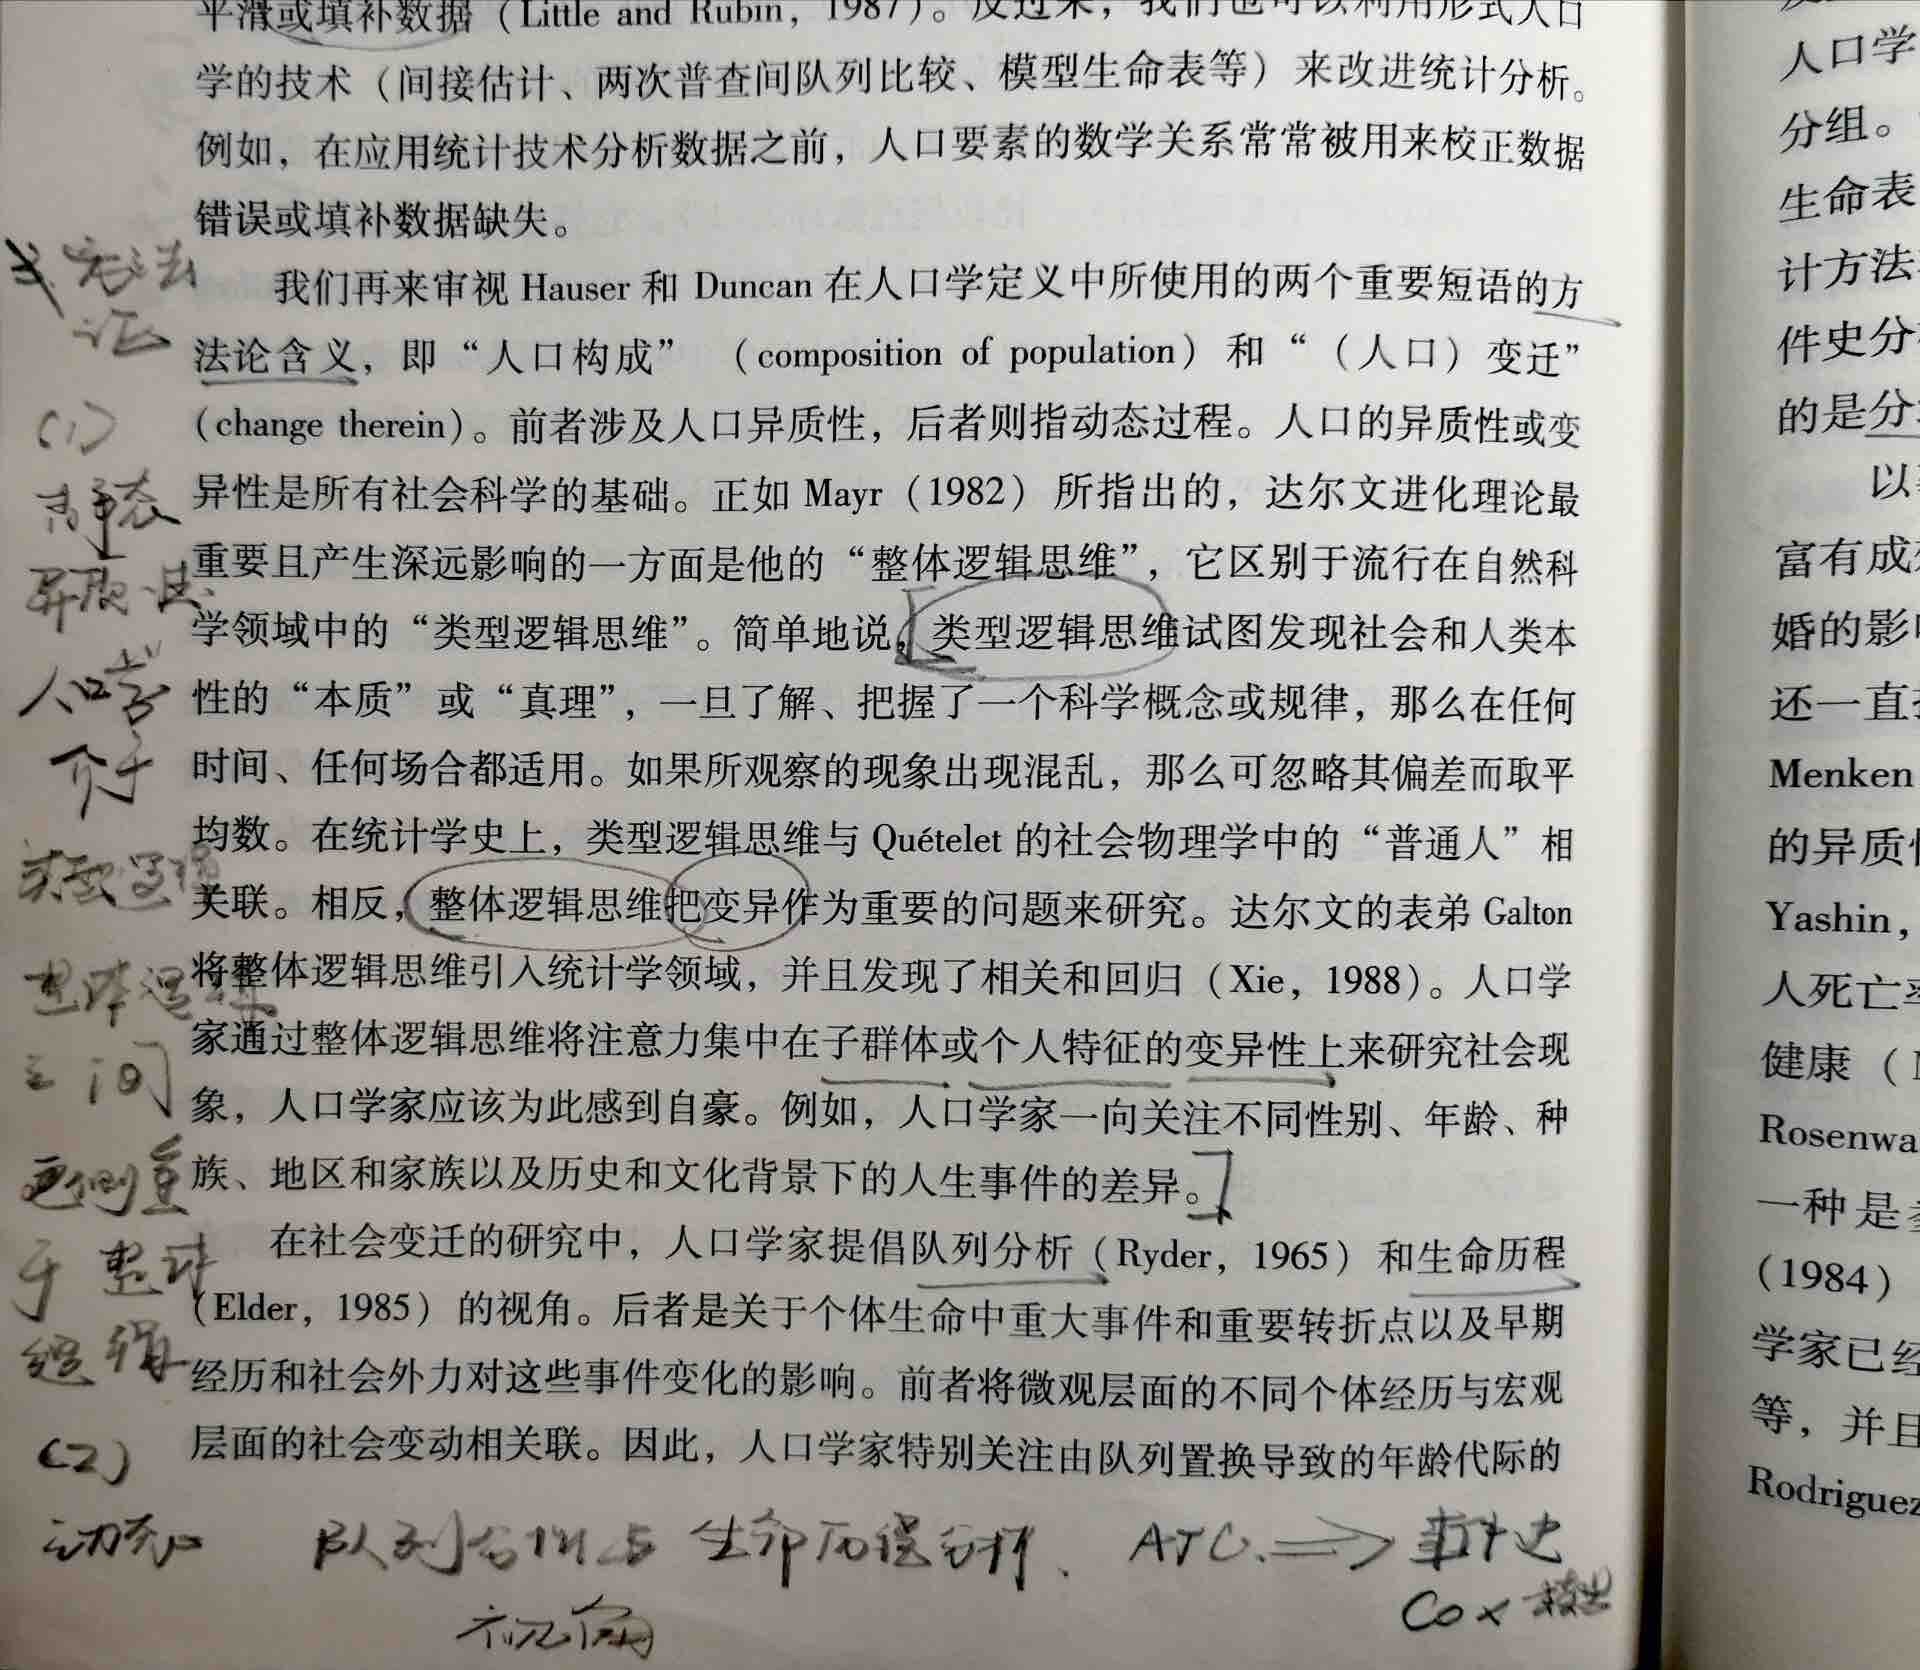 平滑或填补数据（Little and Rubin，1987）。反过来，我们也可以利用形式人口
学的技术（间接估计、两次普查间队列比较、模型生命表等）来改进统计分析。
例如，在应用统计技术分析数据之前，人口要素的数学关系常常被用来校正数据
错误或填补数据缺失。
我们再来审视 Hauser 和 Duncan 在人口学定义中所使用的两个重要短语的方
法论含义，即“人口构成”（composition of population）和“（人口）变迁”
（change therein）。前者涉及人口异质性，后者则指动态过程。人口的异质性或变
异性是所有社会科学的基础。正如 Mayr（1982）所指出的，达尔文进化理论最
重要且产生深远影响的一方面是他的“整体逻辑思维”，它区别于流行在自然科
学领域中的“类型逻辑思维”。简单地说，类型逻辑思维试图发现社会和人类本
性的“本质”或“真理”，一旦了解、把握了一个科学概念或规律，那么在任何
时间、任何场合都适用。如果所观察的现象出现混乱，那么可忽略其偏差而取平
均数。在统计学史上，类型逻辑思维与 Quételet 的社会物理学中的“普通人”相
关联。相反，整体逻辑思维把变异作为重要的问题来研究。达尔文的表弟 Galton
将整体逻辑思维引入统计学领域，并且发现了相关和回归（Xie，1988）。人口学
家通过整体逻辑思维将注意力集中在子群体或个人特征的变异性上来研究社会现
象，人口学家应该为此感到自豪。例如，人口学家一向关注不同性别、年龄、种
族、地区和家族以及历史和文化背景下的人生事件的差异。
在社会变迁的研究中，人口学家提倡队列分析（Ryder，1965）和生命历程
（Elder，1985）的视角。后者是关于个体生命中重大事件和重要转折点以及早期
经历和社会外力对这些事件变化的影响。前者将微观层面的不同个体经历与宏观
层面的社会变动相关联。因此，人口学家特别关注由队列置换导致的年龄代际的
(1)
静态
异质性
人口学
介于
类型逻辑
整体逻辑
之间
更侧重
于整体
逻辑
(2)
动态
队列分析与生命历程分析、
视角
⇒事件史
Cox
人口学
分组。
生命表
计方法
件史分
的是分
以
富有成
婚的影
还一直
Menken
的异质
Yashin，
人死亡率
健康（
Rosenwa
一种是
（1984）
学家已经
等，并且
Rodriguez